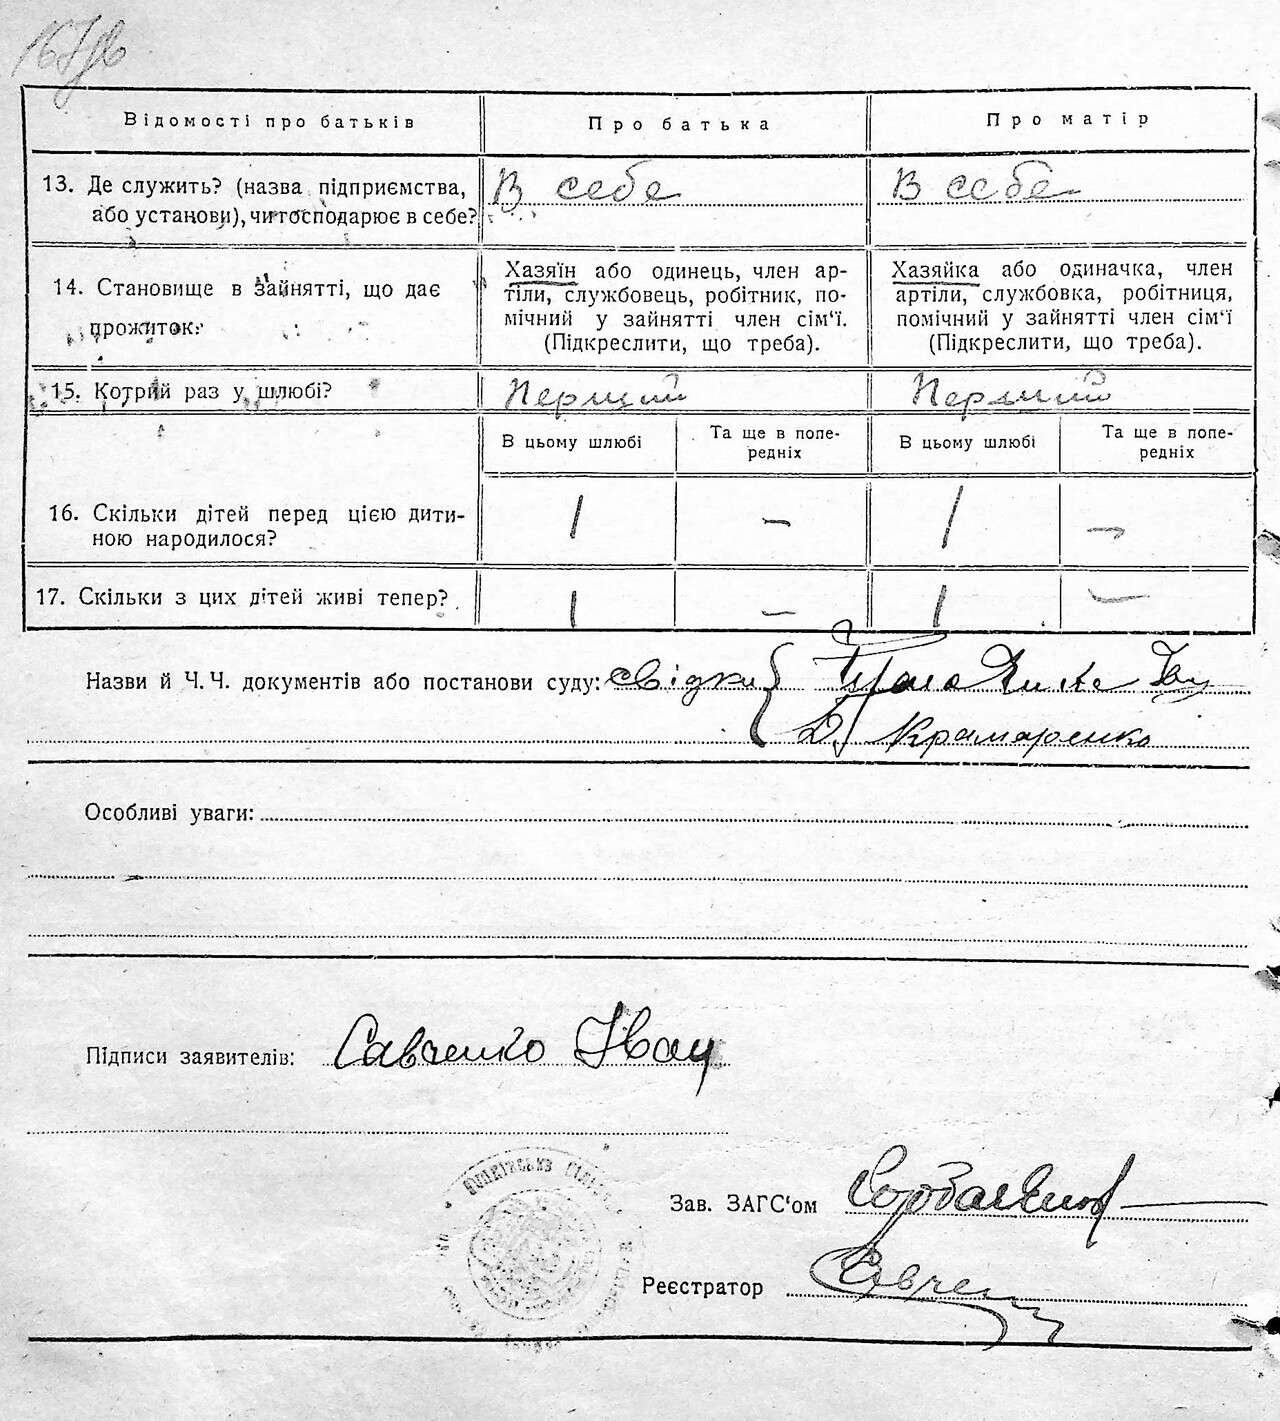 Відомості про батьків
Про батька
Про матір
13. Де служить? (назва підприємства,
або установи), чи господарює в себе?
В себе
В себе
14. Становище в зайнятті, що дає
прожиток:
Хазяїн або одинець, член ар-
тіли, службовець, робітник, по-
мічний у зайнятті член сім‘ї.
(Підкреслити, що треба).
Хазяйка або одиначка, член
артіли, службовка, робітниця,
помічний у зайнятті член сім‘ї
(Підкреслити, що треба).
15. Котрий раз у шлюбі?
Перший
Перший
В цьому шлюбі
Та ще в попе-
редніх
В цьому шлюбі
Та ще в попе-
редніх
16. Скільки дітей перед цією дити-
ною народилося?
1
–
1
–
17. Скільки з цих дітей живі тепер?
1
–
1
–
Назви й Ч. Ч. документів або постанови суду: свідки {
Крамаренко
Особливі уваги:
Підписи заявителів: Савченко Іван
Зав. ЗАГС‘ом
Реєстратор